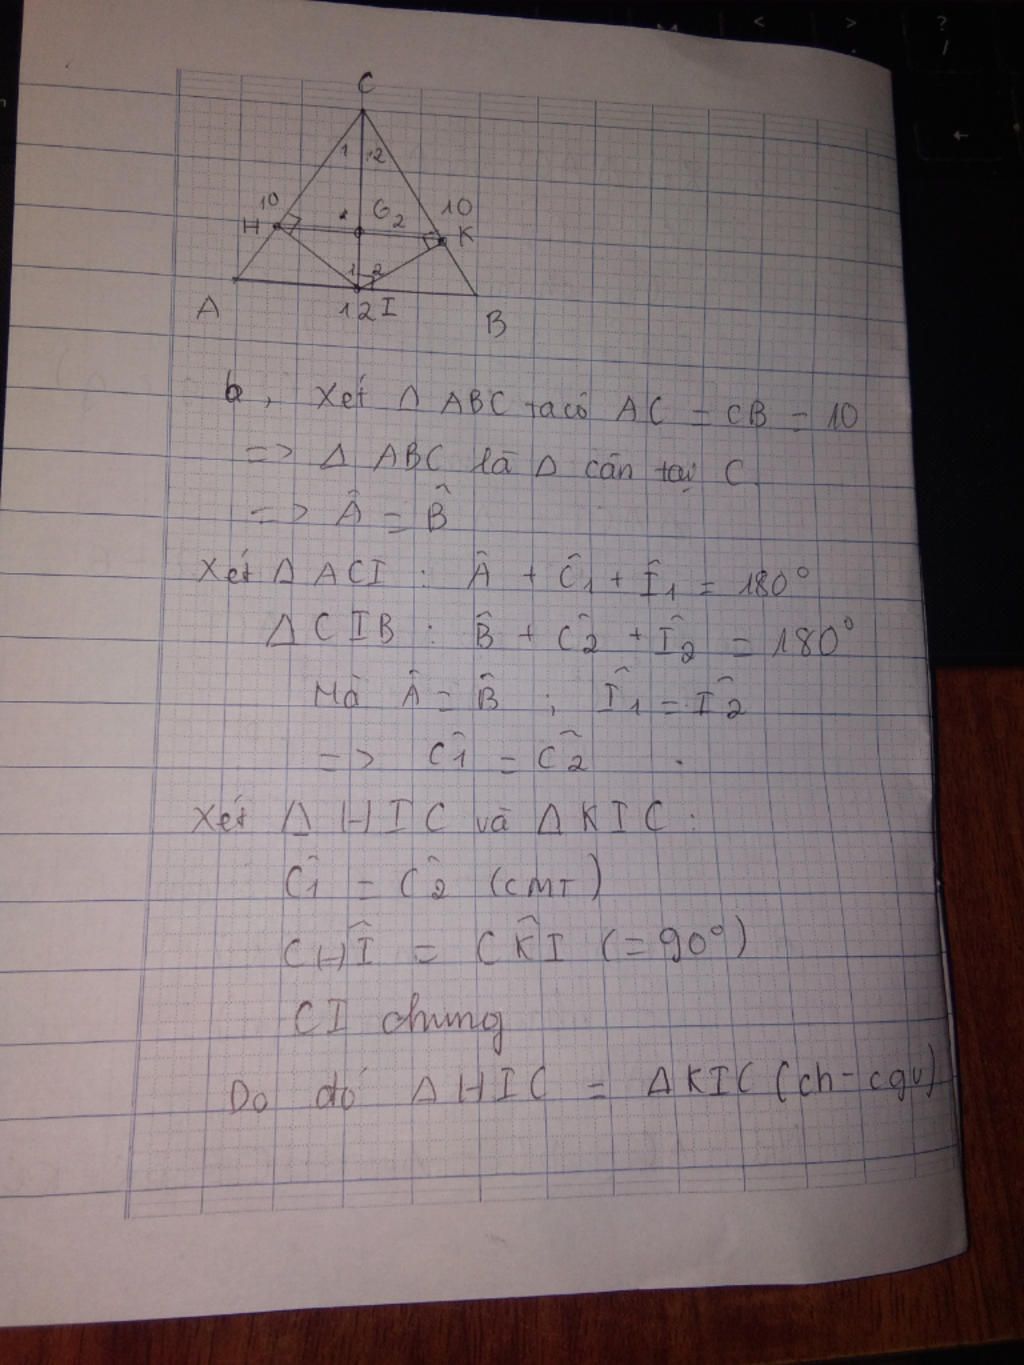 C
1 12
10
H
G 2
10
K
1 2
A
12 I
B
b, Xét Δ ABC ta có AC = CB = 10
=> Δ ABC là Δ cân tại C
=> Â = B̂
Xét Δ ACI : Â + Ĉ1 + Î1 = 180°
Δ CIB : B̂ + Ĉ2 + Î2 = 180°
Mà Â = B̂ ; Î1 = Î2
=> Ĉ1 = Ĉ2
Xét Δ HIC và Δ KIC :
Ĉ1 = Ĉ2 (CMT)
CĤI = CK̂I (= 90°)
CI chung
Do đó Δ HIC = Δ KIC (ch - cgv)